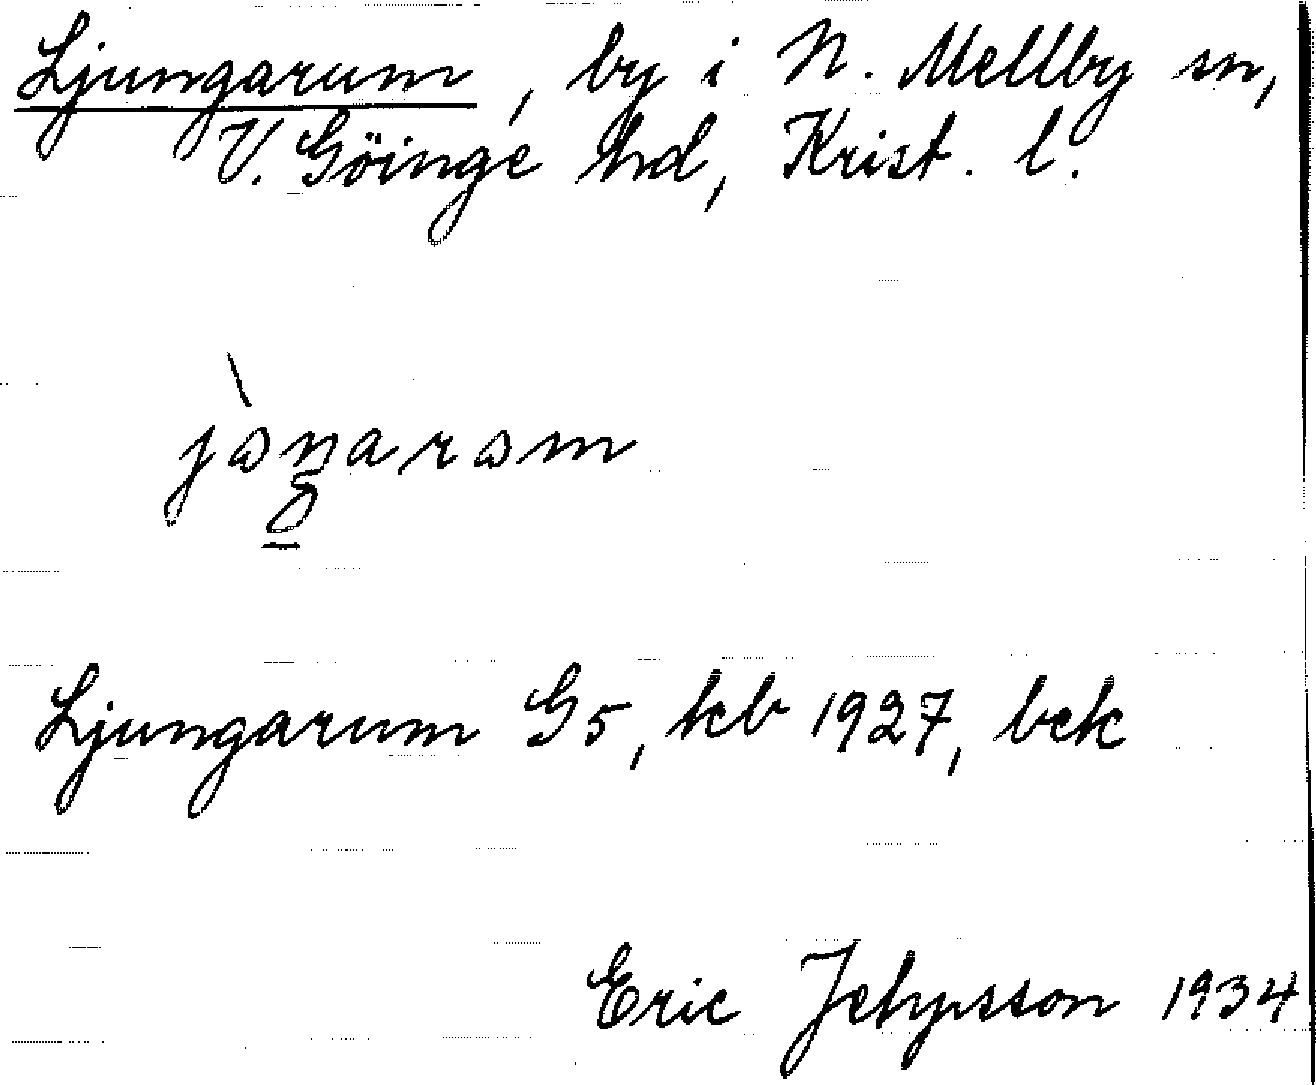 Ljungarum, by i N. Mellby sn,
V. Göinge hd, Krist. l.
Ljungarum G5, kb 1927, bek
Eric 1934